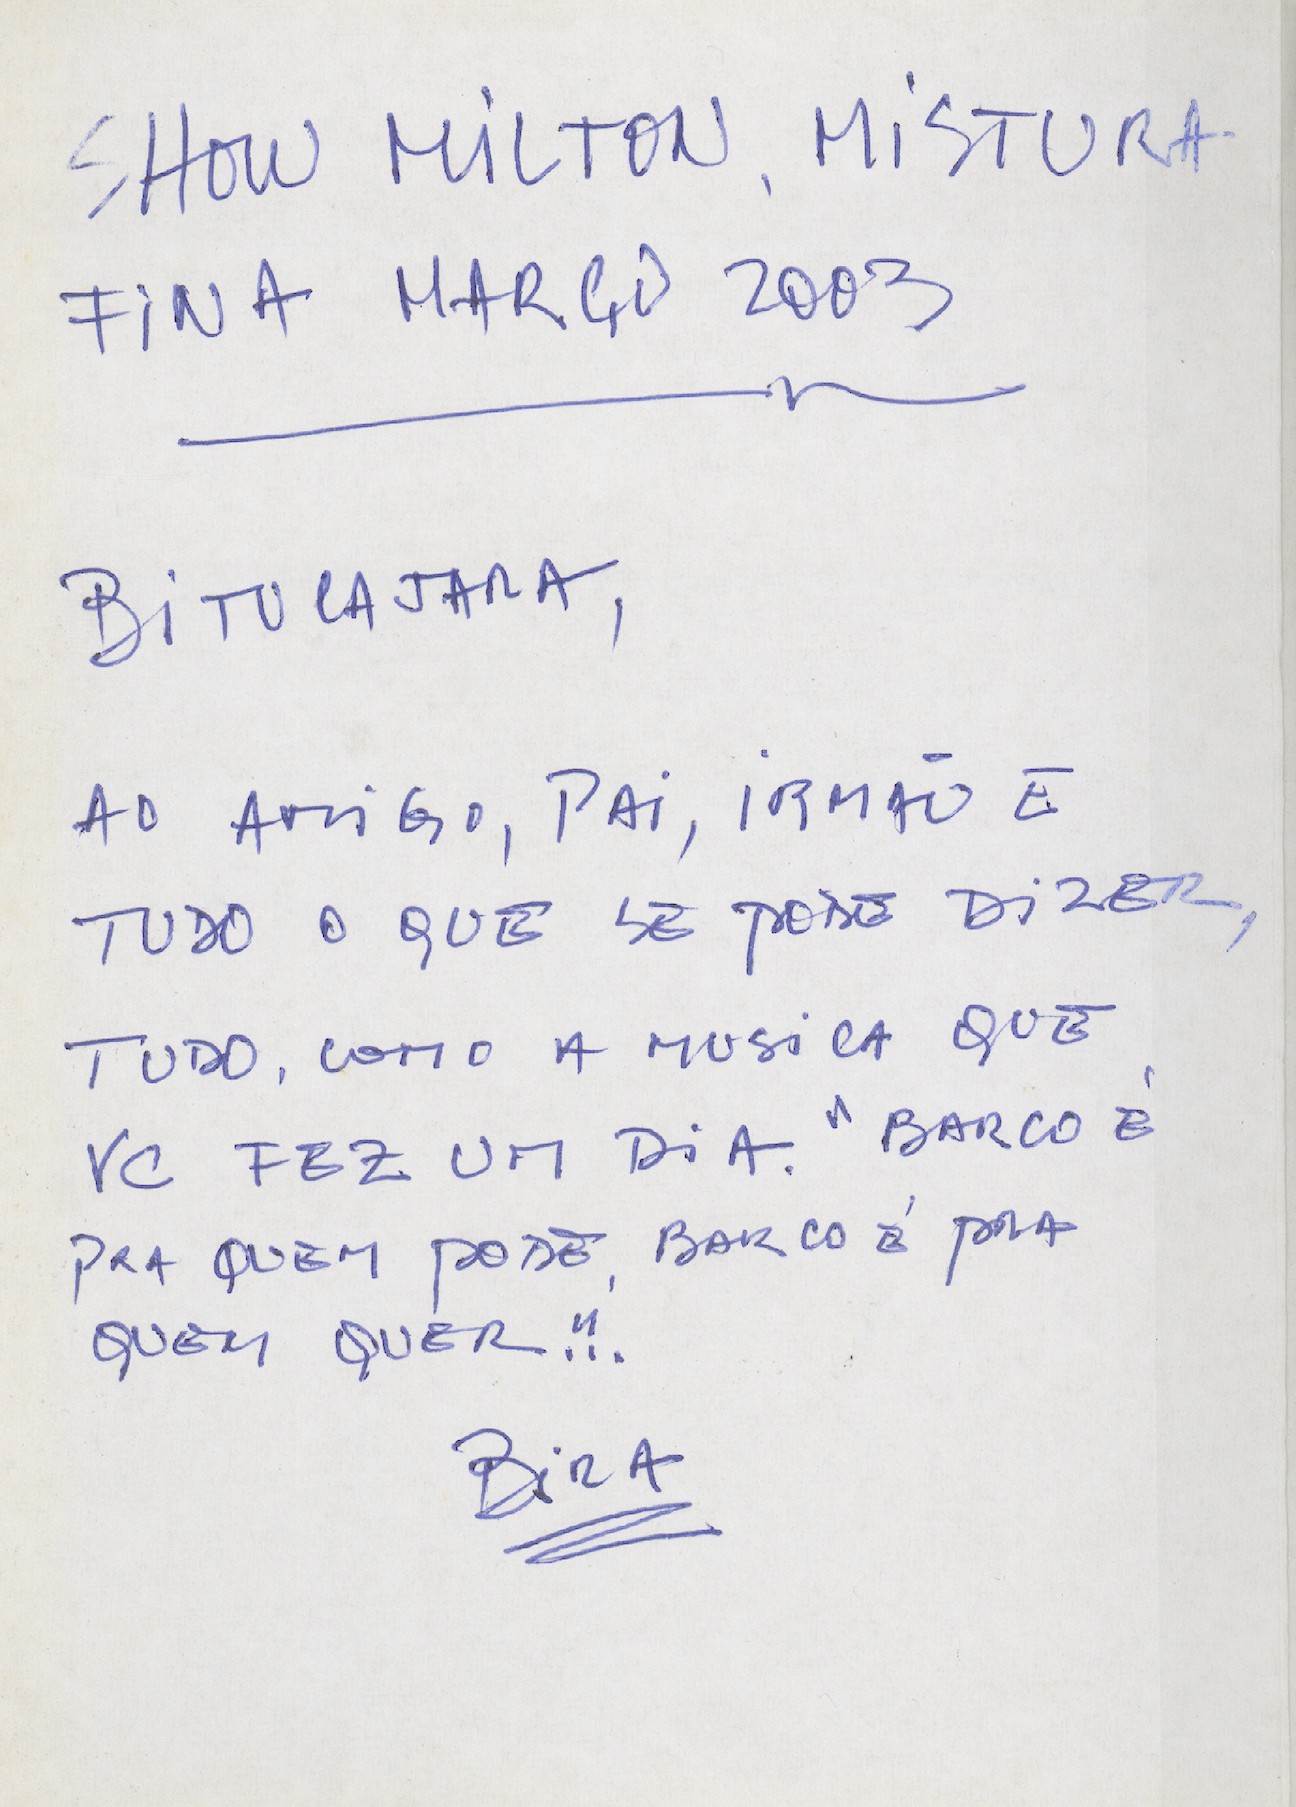 SHOW MILTON, MISTURA
FINA MARÇO 2003
BITUCAJARA,
AO AMIGO, PAI, IRMÃO E
TUDO O QUE SE PODE DIZER,
TUDO, COMO A MUSICA QUE
VC FEZ UM DIA. "BARCO É
PRA QUEM PODE, BARCO É PRA
QUEM QUER"!!.
BIRA